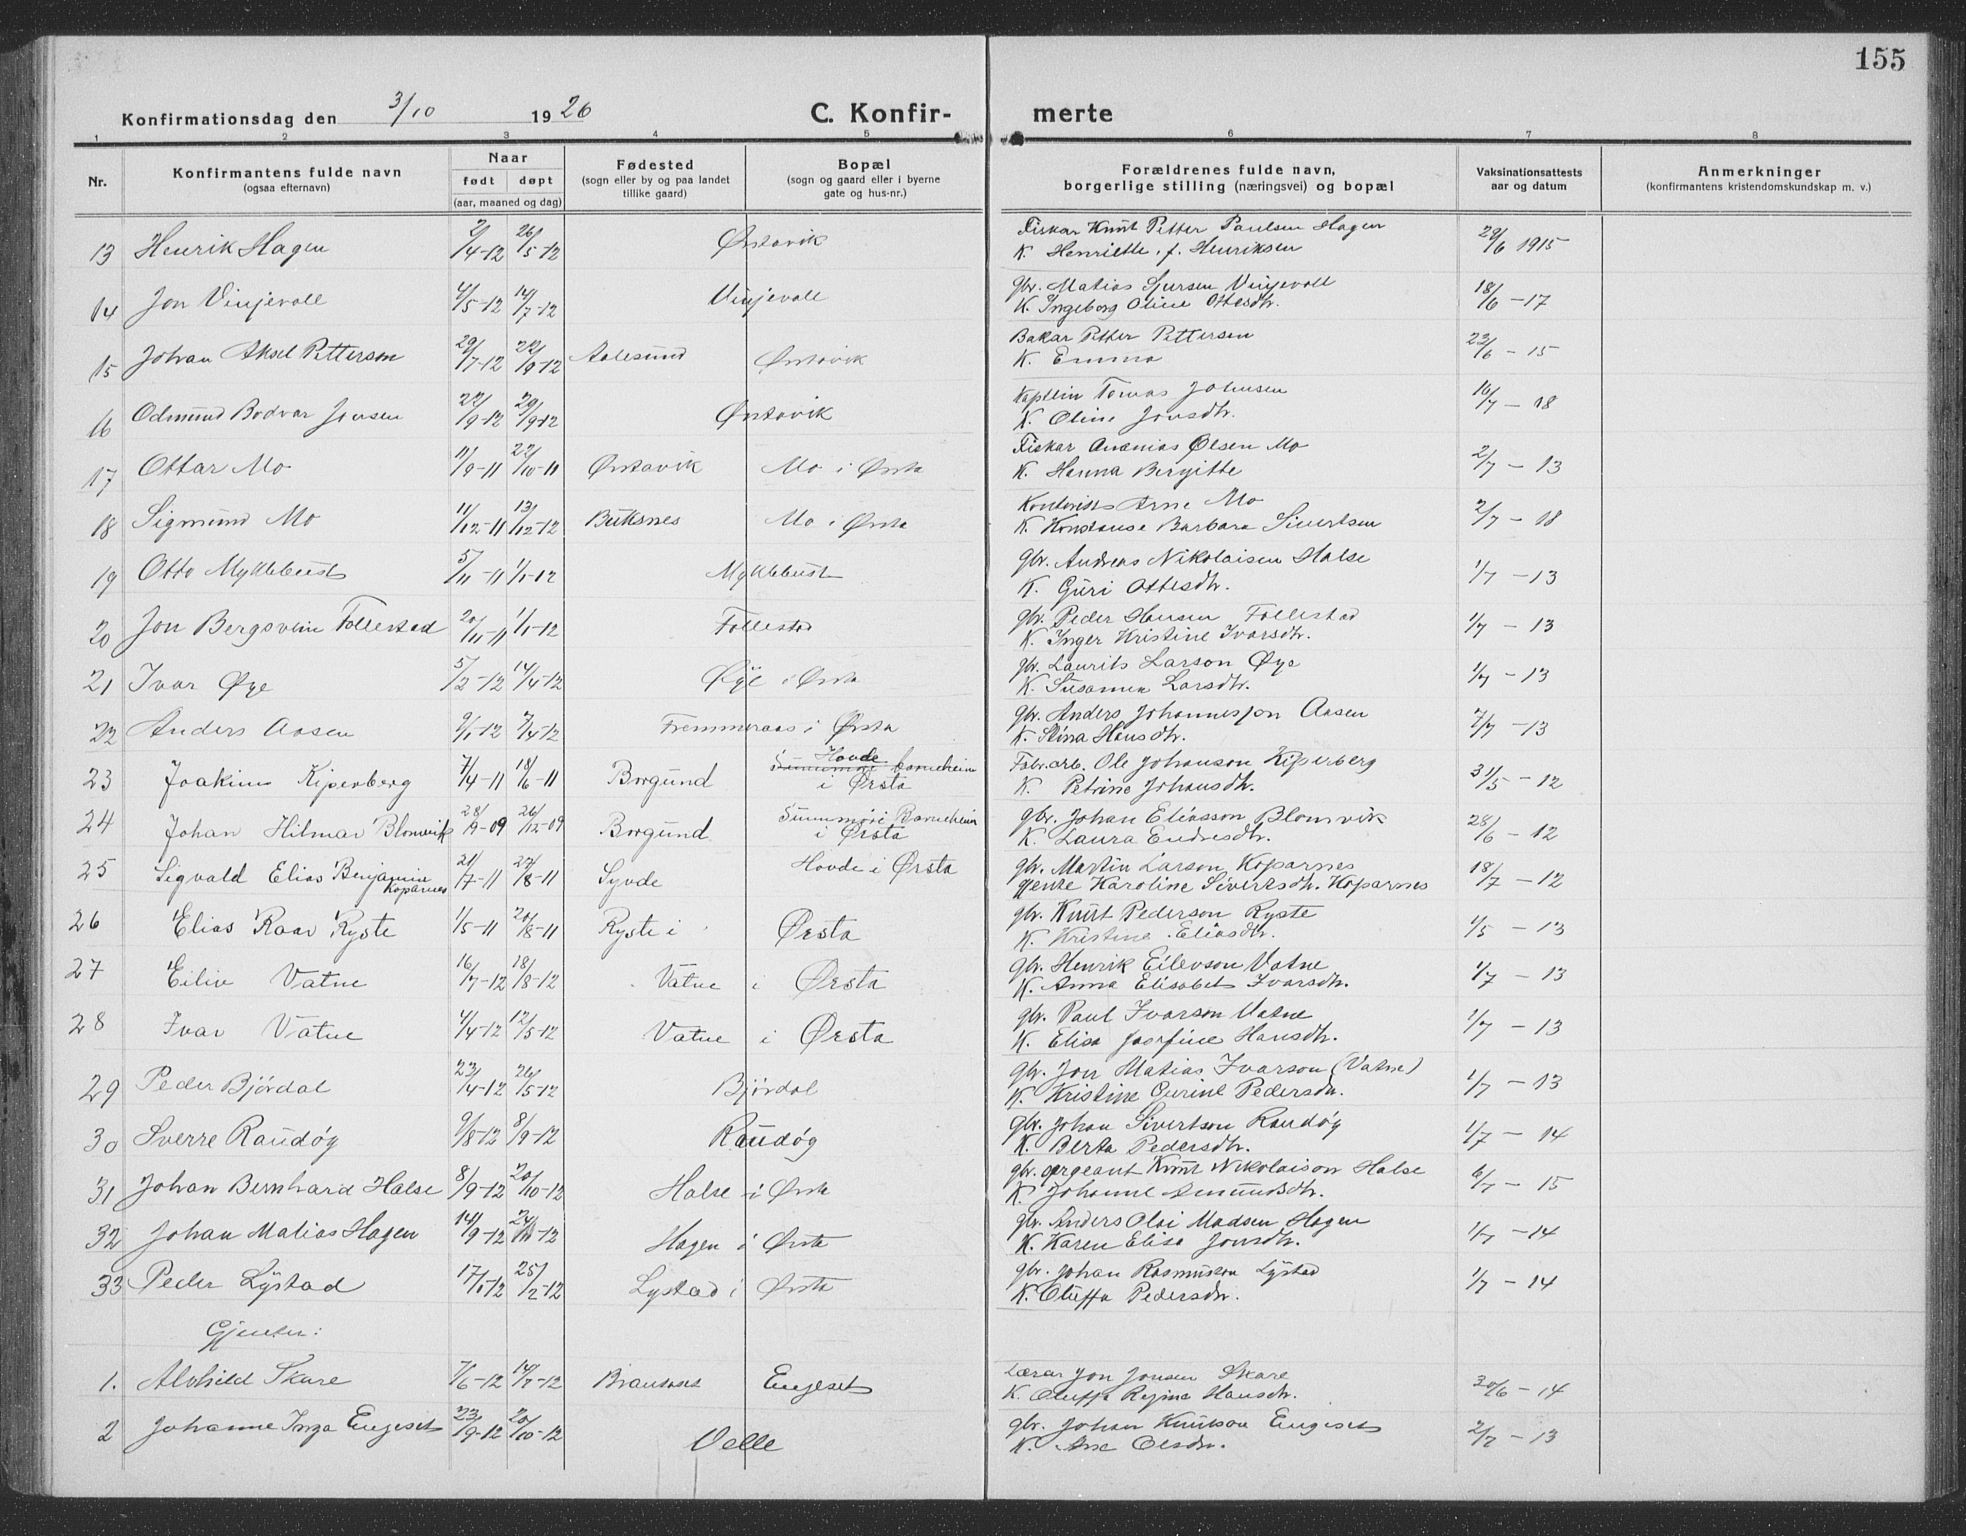 155
Konfirmationsdag den 3/10 1926 C. Konfir- merte
1 2 3 4 5 6 7 8
Nr. Konfirmantens fulde navn (ogsaa efternavn) Naar født døpt (aar, maaned og dag) Fødested (sogn eller by og paa landet tillike gaard) Bopæl (sogn og gaard eller i byerne gate og hus-nr.) Forældrenes fulde navn, borgerlige stilling (næringsvei) og bopæl Vaksinationsattests aar og datum Anmerkninger (konfirmantens kristendomskundskap m. v.)
13 Henrik Hagen 2/4-12 26/5-12 Ørstavik Fiskar Knut Petter Paulsen Hagen
K. Henriette, f. Henriksen 29/6 1915
14 Jon Vinjevoll 4/5-12 14/7-12 Vinjevoll gbr. Matias Sjursen Vinjevoll
K. Ingeborg Oline Ottesdtr. 18/6 - 17
15 Johan Aksel Petterson 29/7-12 22/9-12 Aalesund Ørstavik Bakar Petter Pettersen
K. Emma 23/6 - 15
16 Odmund Bodvar Jensen 22/9-12 29/9-12 Ørstavik Kaptein Tomas Johnsen
K. Oline Jonsdtr. 10/7 - 18
17 Ottar Mo 11/9-11 22/10-11 Ørstavik Mo i Ørsta Fiskar Ananias Olsen Mo
K. Hanna Birgitte 2/7 - 13
18 Sigmund Mo 11/12-11 13/12-12 Buksnes Mo i Ørsta Kontorist Arne Mo
K. Konstanse Barbara Sivertsen 2/7 - 18
19 Otto Myklebust 5/11-11 1/1-12 Myklebust gbr. Andreas Nikolaisen Halse
K. Guri Ottesdtr. 1/7 - 13
20 Jon Bergsvein Follestad 20/11-11 1/1-12 Follestad gbr. Peder Hansen Follestad
K. Inger Kristine Ivarsdtr. 1/7 - 13
21 Ivar Øye 5/2-12 14/4-12 Øye i Ørsta gbr. Laurits Larson Øye
K. Susanna Larsdtr. 1/7 - 13
22 Anders Aasen 9/1-12 7/4-12 Fremmeraas i Ørsta gbr. Anders Johannesson Aasen
K. Stina Hansdtr. 7/7 - 13
23 Joakim Kiperberg 7/4-11 18/6-11 Borgund Hovde
Sunnmøre barneheim
i Ørsta Fabr.arb. Ole Johanson Kiperberg
K. Petrine Johansdtr. 31/5 - 12
24 Johan Hilmar Blomvik 28/9-09 26/12-09 Borgund Sunnmøri Barneheim
i Ørsta gbr. Johan Eliasson Blomvik
K. Laura Endresdtr. 28/6 - 12
25 Sigvald Elias Benjamin
Koparnes 21/7-11 27/8-11 Syvde Hovde i Ørsta gbr. Martin Larson Koparnes
gjente Karoline Sivertsdtr. Koparnes 18/7 - 12
26 Elias Roar Ryste 1/5-11 20/8-11 Ryste i Ørsta gbr. Knut Pederson Ryste
K. Kristine Eliasdtr. 1/5 - 13
27 Eiliv Vatne 16/7-12 18/8-12 Vatne i Ørsta gbr. Henrik Eilevson Vatne
K. Anna Elisabet Ivarsdtr. 1/7 - 13
28 Ivar Vatne 4/4-12 12/5-12 Vatne i Ørsta gbr. Paul Ivarson Vatne
K. Elisa Josefine Hansdtr. 1/7 - 13
29 Peder Bjørdal 23/4-12 26/5-12 Bjørdal gbr. Jon Matias Ivarson (Vatne)
K. Kristine Gurine Pedersdtr. 1/7 - 13
30 Sverre Raudøy 9/8-12 8/9-12 Raudøy gbr. Johan Sivertson Raudøy
K. Berta Pedersdtr. 1/7 - 14
31 Johan Bernhard Halse 8/9-12 20/10-12 Halse i Ørsta gbr. sergeant Knut Nikolaison Halse
K. Johanne Amundsdtr. 6/7 - 15
32 Johan Matias Hagen 14/9-12 Hagen i Ørsta gbr. Anders Olai Madsen Hagen
K. Karen Elisa Jonsdtr. 1/7 - 14
33 Peder Lystad 17/1-12 25/2-12 Lystad i Ørsta gbr. Johan Rasmusson Lystad
K. Oluffa Pedersdtr. 1/7 - 14
Gjenter:
1. Alvhild Skare 7/6-12 14/7-12 Engeset Lærar Jon Jonsen Skare
K. Oluffa Regine Hansdtr. 30/6 - 14
2 Johanne Inga Engeset 23/9-12 20/10-12 Velle gbr. Johan Knutson Engeset
K. Ane Olsdtr. 2/7 - 13